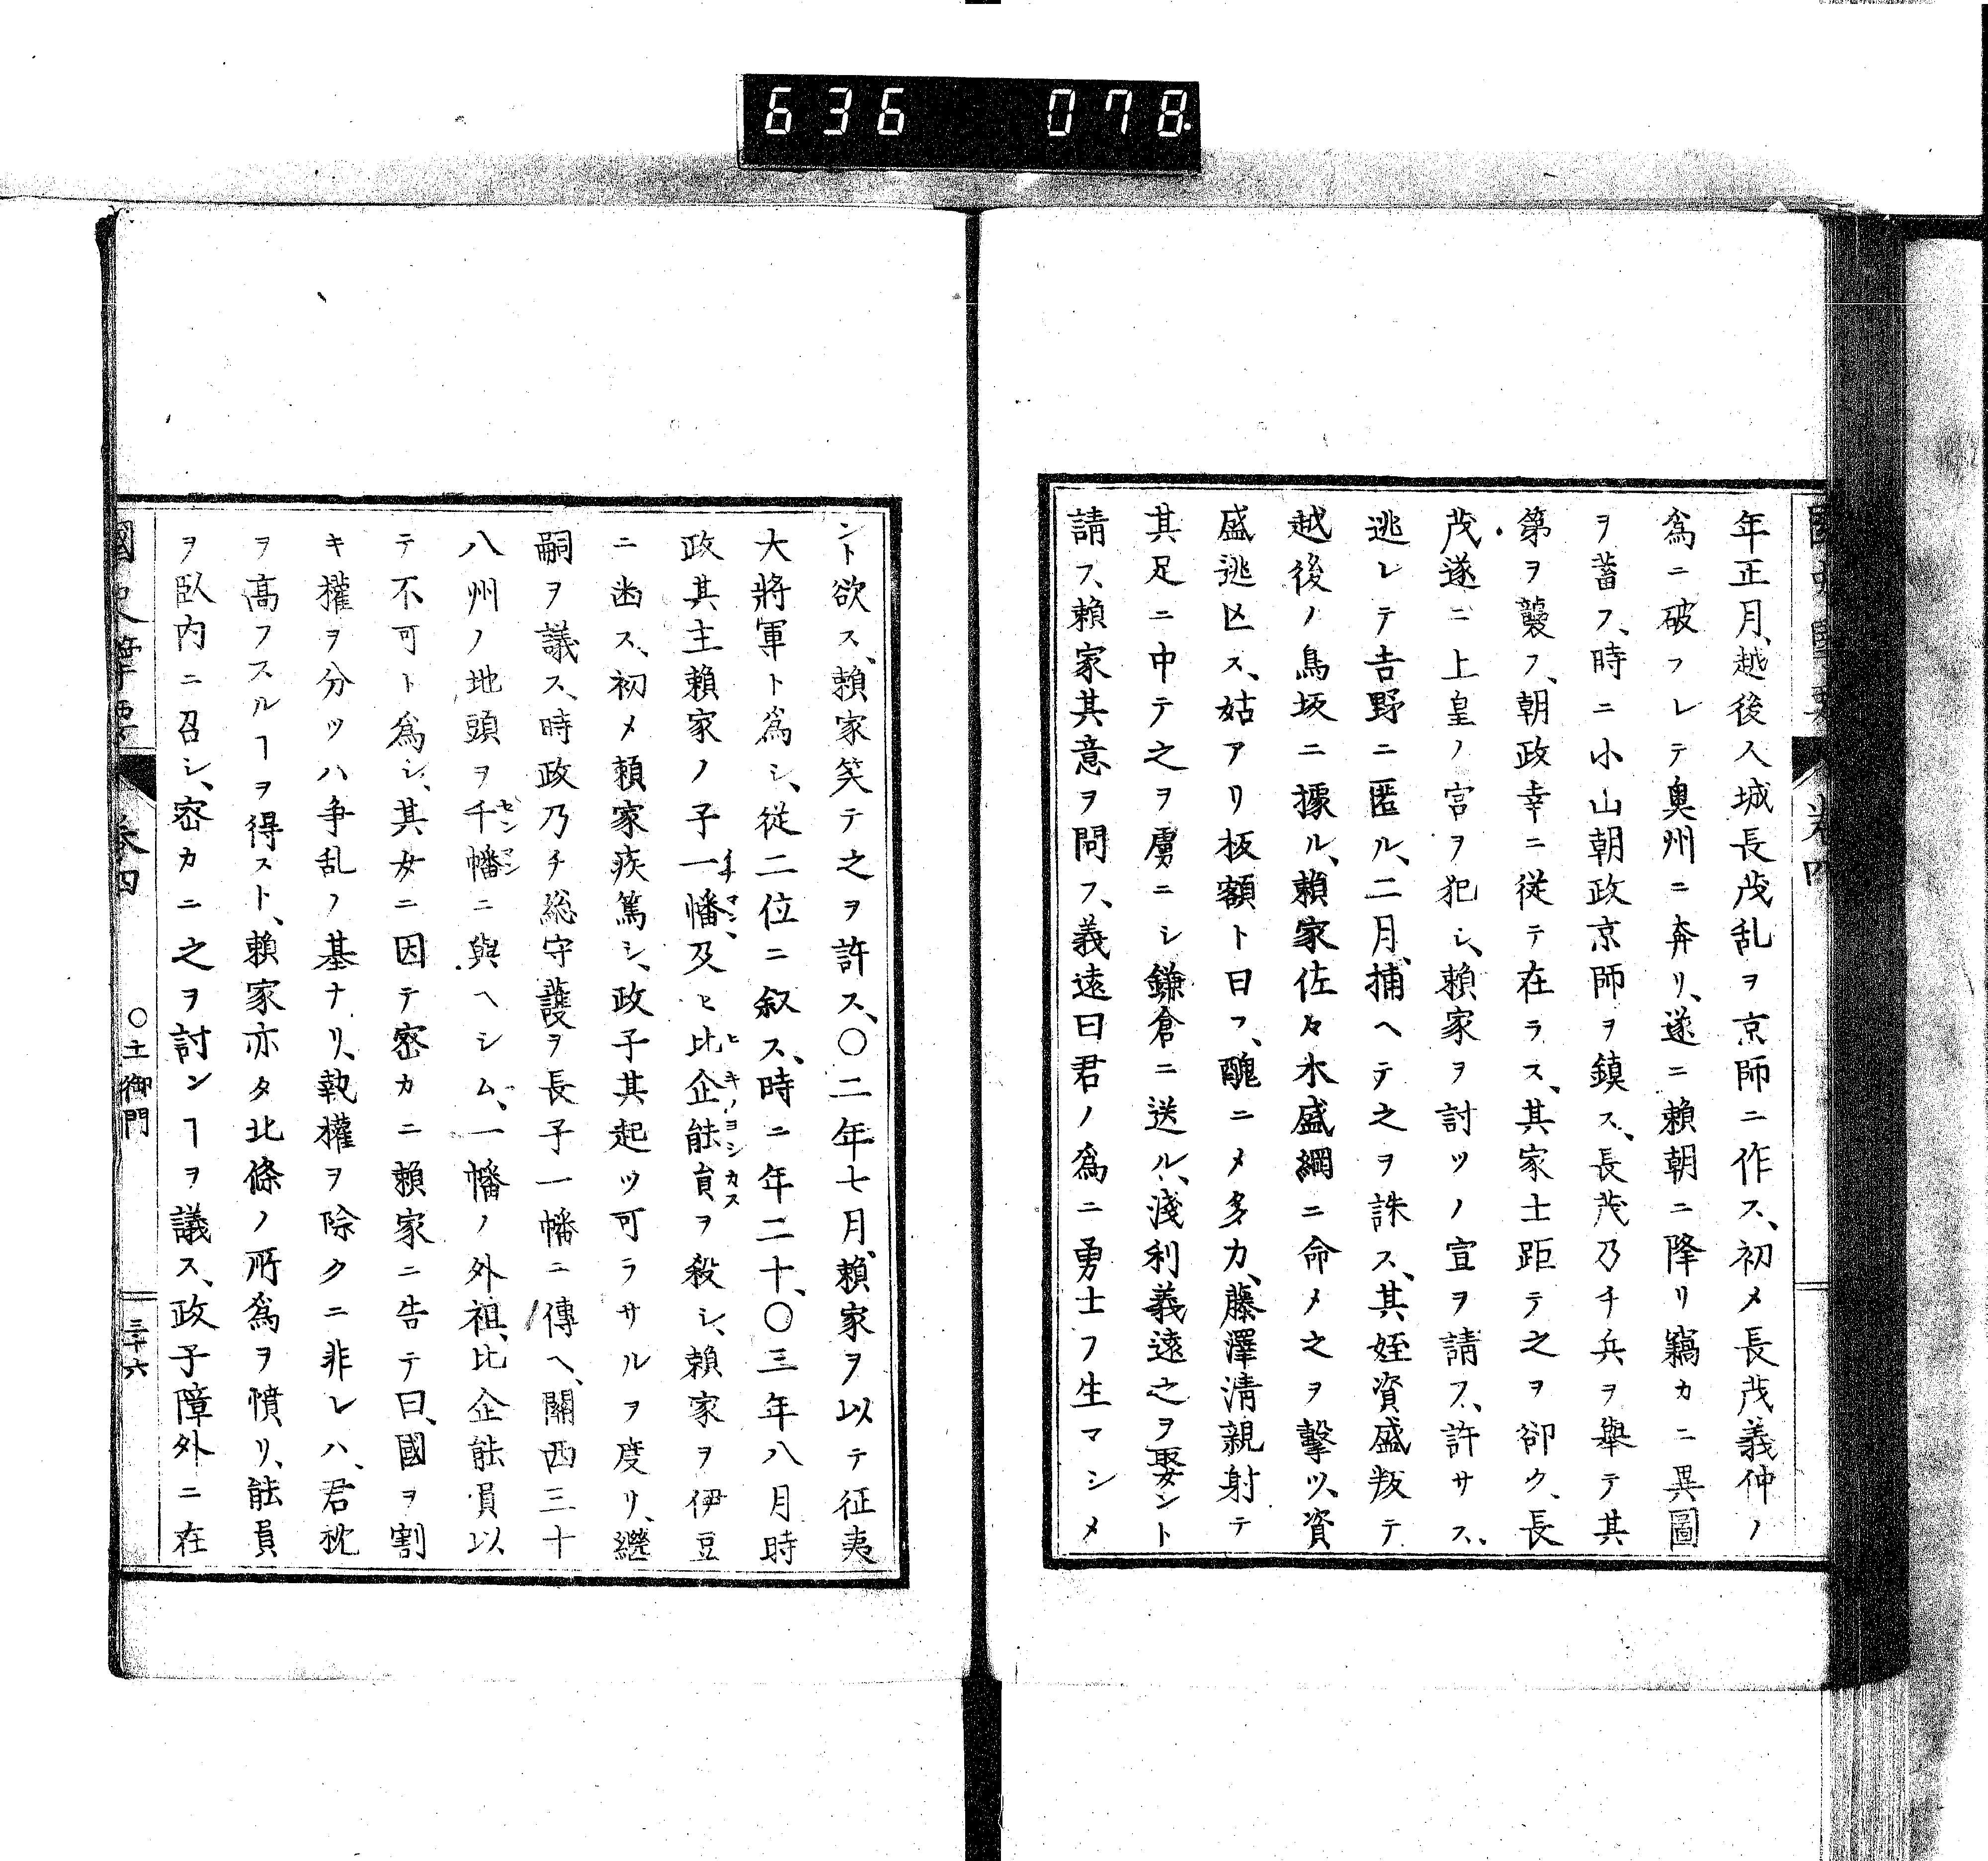 636 078
年正月、越後ノ人城長茂乱ヲ京師ニ作ス、初メ長茂義仲ノ
爲ニ破フレテ奥州ニ奔リ、遂ニ頼朝ニ降リ竊カニ異圖
ヲ蓄フ、時ニ小山朝政京師ヲ鎮ス、長茂乃チ兵ヲ舉テ其
第ヲ襲フ、朝政幸ニ従テ在ラス、其家士距テ之ヲ卻ク、長
茂遂ニ上皇ノ宮ヲ犯シ、頼家ヲ討ツノ宣ヲ請フ、許サス、
逃レテ吉野ニ匿ル、二月、捕ヘテ之ヲ誅ス、其姪資盛叛テ
越後ノ鳥坂ニ據ル、頼家佐々木盛綱ニ命メ之ヲ擊ツ、資
盛逃亡ス、姑アリ板額ト曰フ、醜ニメ多力、藤澤清親射テ
其足ニ中テ之ヲ虜ニシ鎌倉ニ送ル、淺利義遠之ヲ娶ント
請フ、頼家其意ヲ問フ、義遠曰君ノ爲ニ勇士フ生マシメ
ント欲ス、頼家笑テ之ヲ許ス、〇二年七月、頼家ヲ以テ征夷
大將軍ト爲シ、従二位ニ叙ス、時ニ年二十、〇三年八月時
政其主頼家ノ子一幡及ヒ比企能員ヲ殺シ、頼家ヲ伊豆
ニ幽ス、初メ頼家疾篤シ、政子其起ツ可ラサルヲ度リ、繼
嗣ヲ議ス、時政乃チ総守護ヲ長子一幡ニ傳ヘ、關西三十
八州ノ地頭ヲ千幡ニ與ヘシム、一幡ノ外祖、比企能員以
テ不可ト爲シ、其女ニ因テ密カニ頼家ニ告テ曰、國ヲ割
キ權ヲ分ツハ爭乱ノ基ナリ、執權ヲ除クニ非レハ、君枕
ヲ高フスルヿヲ得スト、頼家亦タ北條ノ所爲ヲ憤リ、能員
ヲ臥内ニ召シ、密カニ之ヲ討ンヿヲ議ス、政子障外ニ在
國史擥要 卷四 〇土御門 三十六